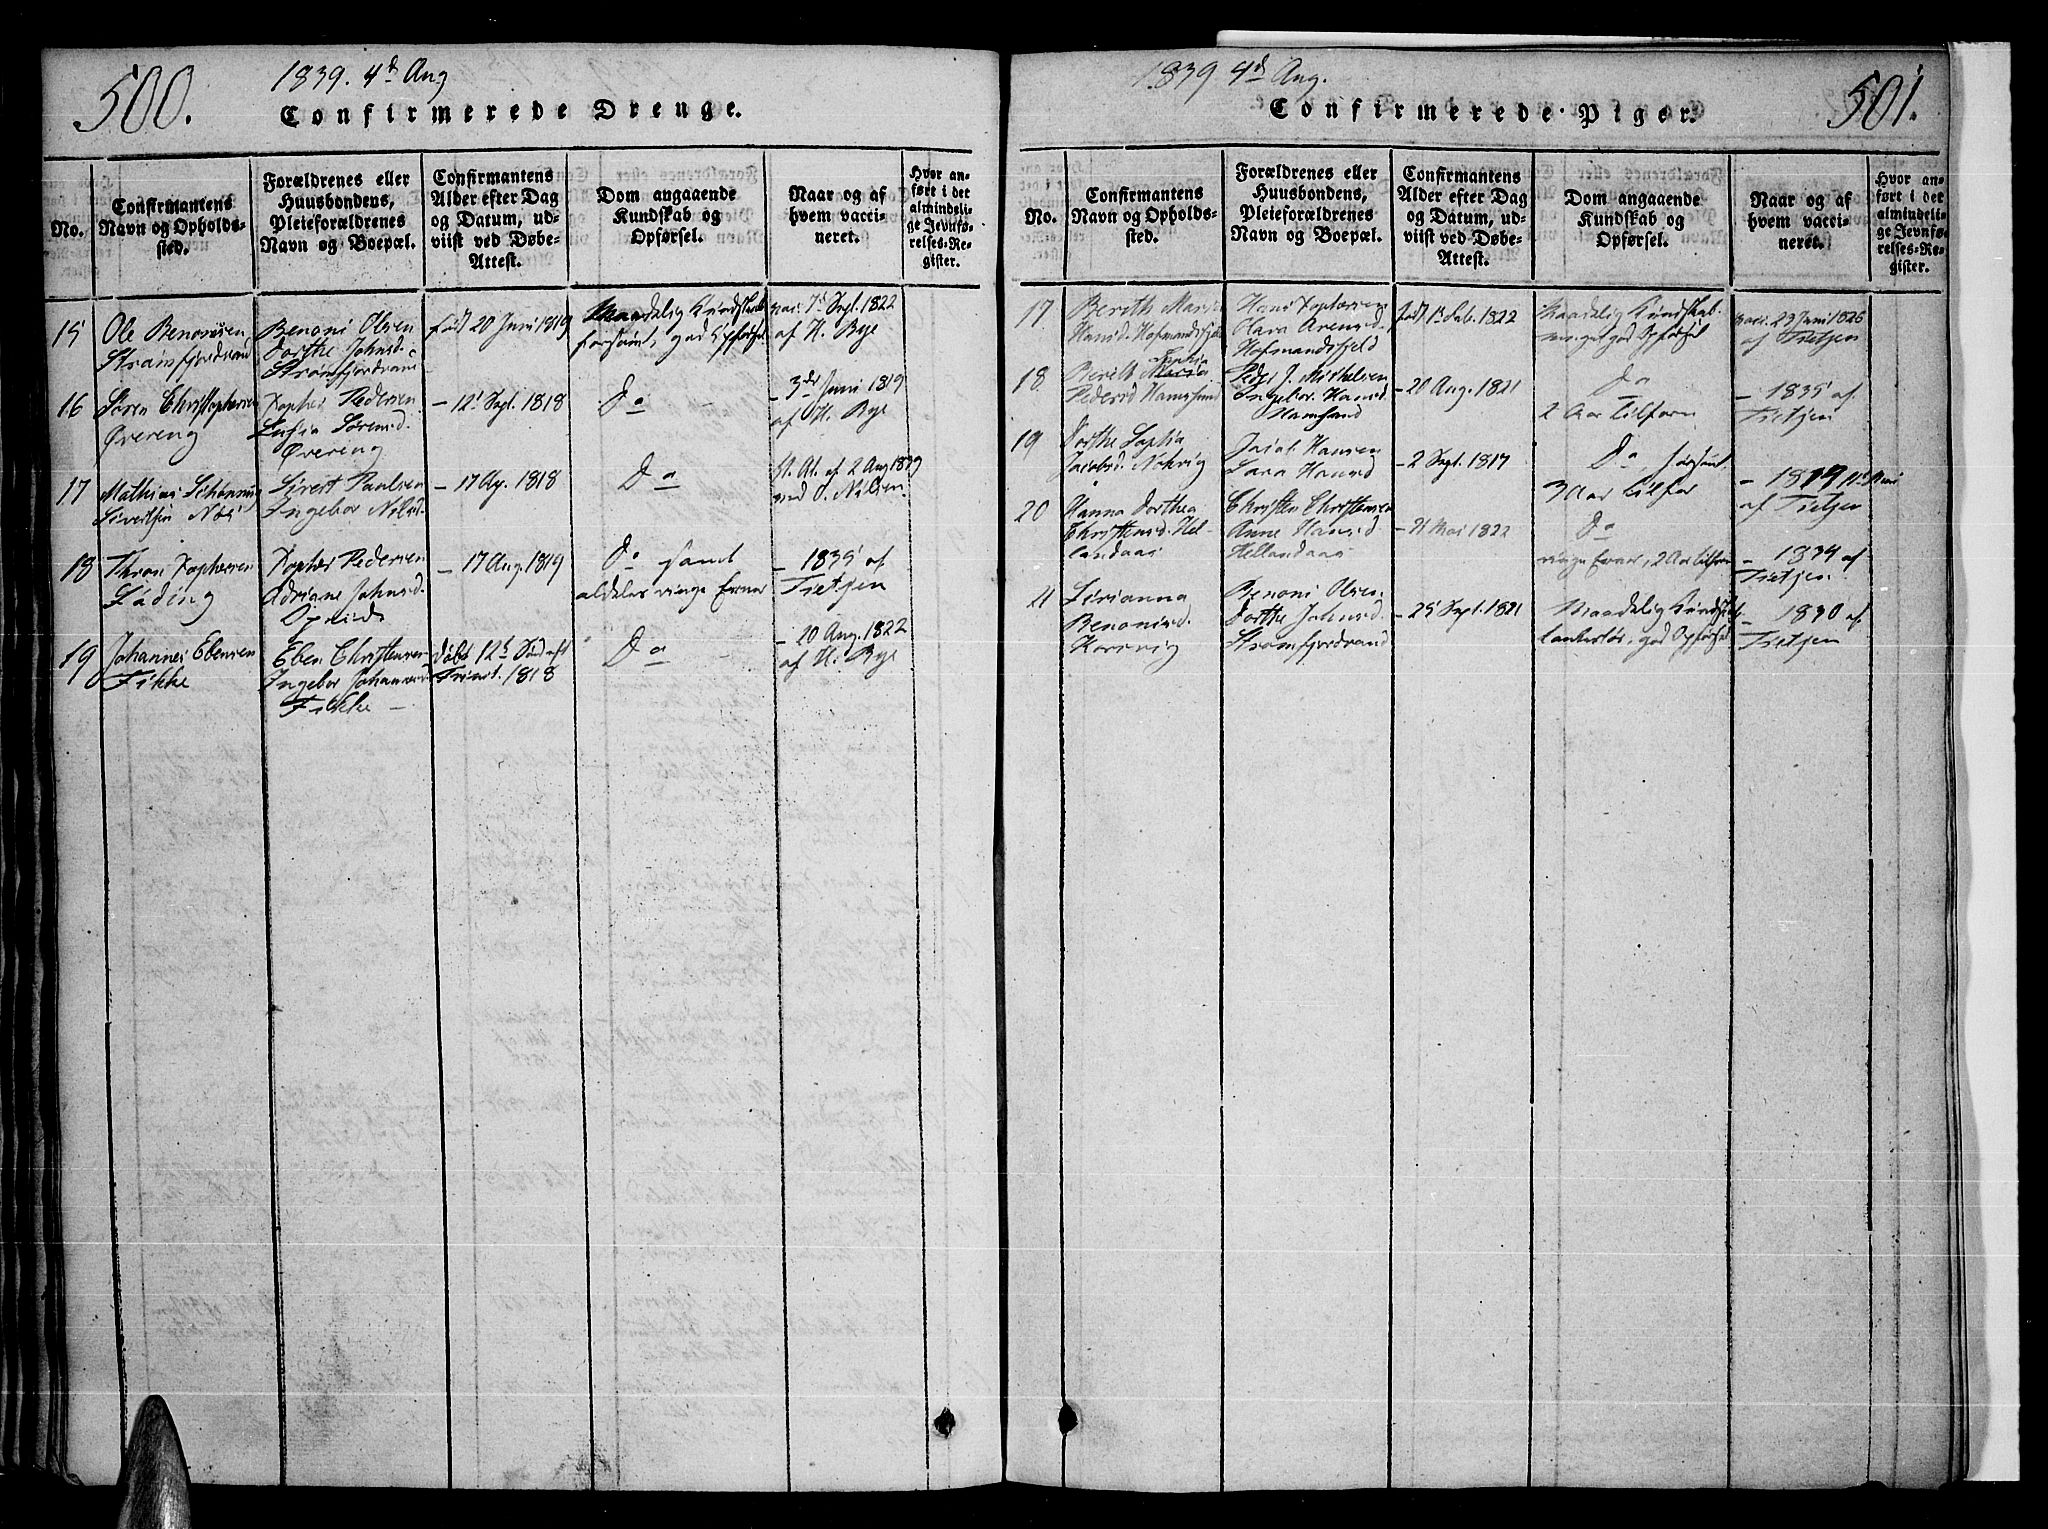 500.
1839. 4d Aug
Confirmerede Drenge.
No.
Confirmantens
Navn og Opholds-
sted.
Forældrenes eller
Huusbondens,
Pleieforældrenes
Navn og Boepæl.
Confirmantens
Alder efter Dag
og Datum, ud-
viist ved Døbe-
Attest.
Dom angaaende
Kundskab og
Opførsel.
Naar og af
hvem vacci-
neret.
Hvor an-
ført i det
almindeli-
ge Jevnfø-
relses-Re-
gister.
15
Ole Benonisen
Strømfjordrand
Benoni Olsen
Dorthe Johnsd.
Strømfjordrand
født 20 Juni 1819
Maadelig Kundskab
forsømt, god Opførsel
vac. 7d Sept. 1822
af H. Bye
16
Søren Christophersen
Øvereng
Xopher Pedersen
Sørensd
Øvereng
– 12t Sept. 1818
Do –
– 3de Juni 1819
af H. Bye
17
Mathias
Sivertsen
Sivert Paulsen
Ingebor Nilsd.
– 17 Ag. 1818
Do
At. af 2 Aug 1839
O. Nilsen
18
Thron Xophersen
Xopher Pedersen
Adriane Johnsd.
– 17 Aug. 1819
Do samt
aldeles ringe Evner
– 1835 af
Tietjen
19
Johannes Ebensen
Fikke
Eben Christensen
Ingebor Johannesd
Fikke –
døbt 12t Sønd. eft
Trinit. 1818
Do –
– 20 Aug. 1822
af H. Bye
501.
1839 4d Aug.
Confirmerede Piger.
No.
Confirmantens
Navn og Opholds-
sted.
Forældrenes eller
Huusbondens,
Pleieforældrenes
Navn og Boepæl.
Confirmantens
Alder efter Dag
og Datum, ud-
viist ved Døbe-
Attest.
Dom angaaende
Kundskab og
Opførsel.
Naar og af
hvem vacci-
neret.
Hvor an-
ført i det
almindeli-
ge Jevnfø-
relses-Re-
gister.
17
Berith
Hansd. Hofmandsfjeld
Hans Xophersen
Arensd.
Hofmandsfjeld
født 1st Feb. 1822
Maadelig Kundskab
meget god Opførsel
vac. 23 Juni 1826
af Tietjen
18
Berith Sophia
Pedersd Hamsund
Peder J. Mikkelsen
Ingebor Hansd
Hamsund
– 20 Aug. 1821
Do
2 Aar tilforn
– 1835 af
Tietjen
19
Dorthe Sophia
Jacobsd.
Jacob Hansen
Sara Hansd
– 2 Sept. 1817
Do,
3 Aar tilfor
– 1819
af Tietjen
20
Hanna Dorthea
Christensd. Hel-
landaas
Christen Christensen
Anne Hansd
Hellandaas
– 21 Mai 1822
Do
ringe Evner, 2 Aar tilforn
– 1834 af
Tietjen.
21
Sirianna
Benonisd.
Korsvig
Benoni Olsen
Dorthe Johnsd
Strømfjordrand
– 25 Sept. 1821
Maadelig Kundskab
tankeløs, god Opførsel
– 1830 af
Tietjen